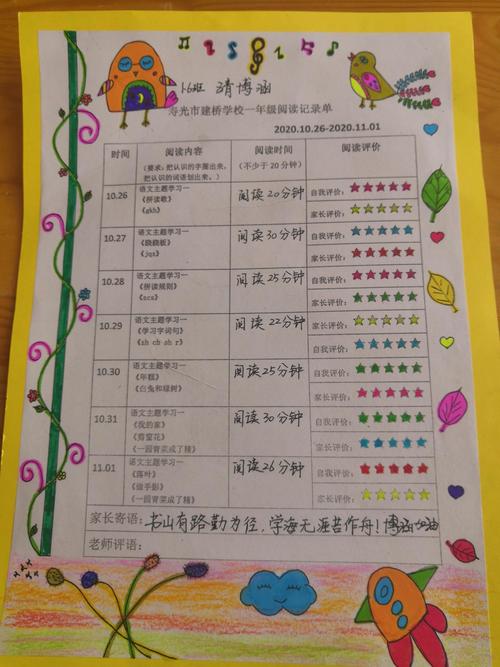 1.6班 清博涵
寿光市建桥学校一年级阅读记录单
2020.10.26-2020.11.01
时间 阅读内容 阅读时间 阅读评价
(要求:把认识的字圈出来, (不少于20分钟)
把认识的词语划出来。)
10.26 语文主题学习一 阅读20分钟 自我评价:★★★★★
《拼读歌》 家长评价:★★★★★
《gkh》
10.27 语文主题学习一 阅读30分钟 自我评价:★★★★★
《跷跷板》 家长评价:★★★★★
《jqx》
10.28 语文主题学习一 阅读25分钟 自我评价:★★★★★
《拼读规则》 家长评价:★★★★★
《zcs》
10.29 语文主题学习一 阅读22分钟 家长评价:★★★★★
《学习字词句》 自我评价:★★★★★
《zh ch sh r》
10.30 语文主题学习一 阅读25分钟 自我评价:★★★★★
《年糕》 家长评价:★★★★★
《白兔和绿树》
10.31 语文主题学习一 阅读30分钟 自我评价:★★★★★
《我的家》 家长评价:★★★★★
《剪窗花》
《一园青菜成了精》
11.01 语文主题学习一 阅读26分钟 自我评价:★★★★★
《落叶》 家长评价:★★★★★
《做手影》
《一园青菜成了精》
家长寄语:书山有路勤为径,学海无涯苦作舟!博涵加油
老师评语: